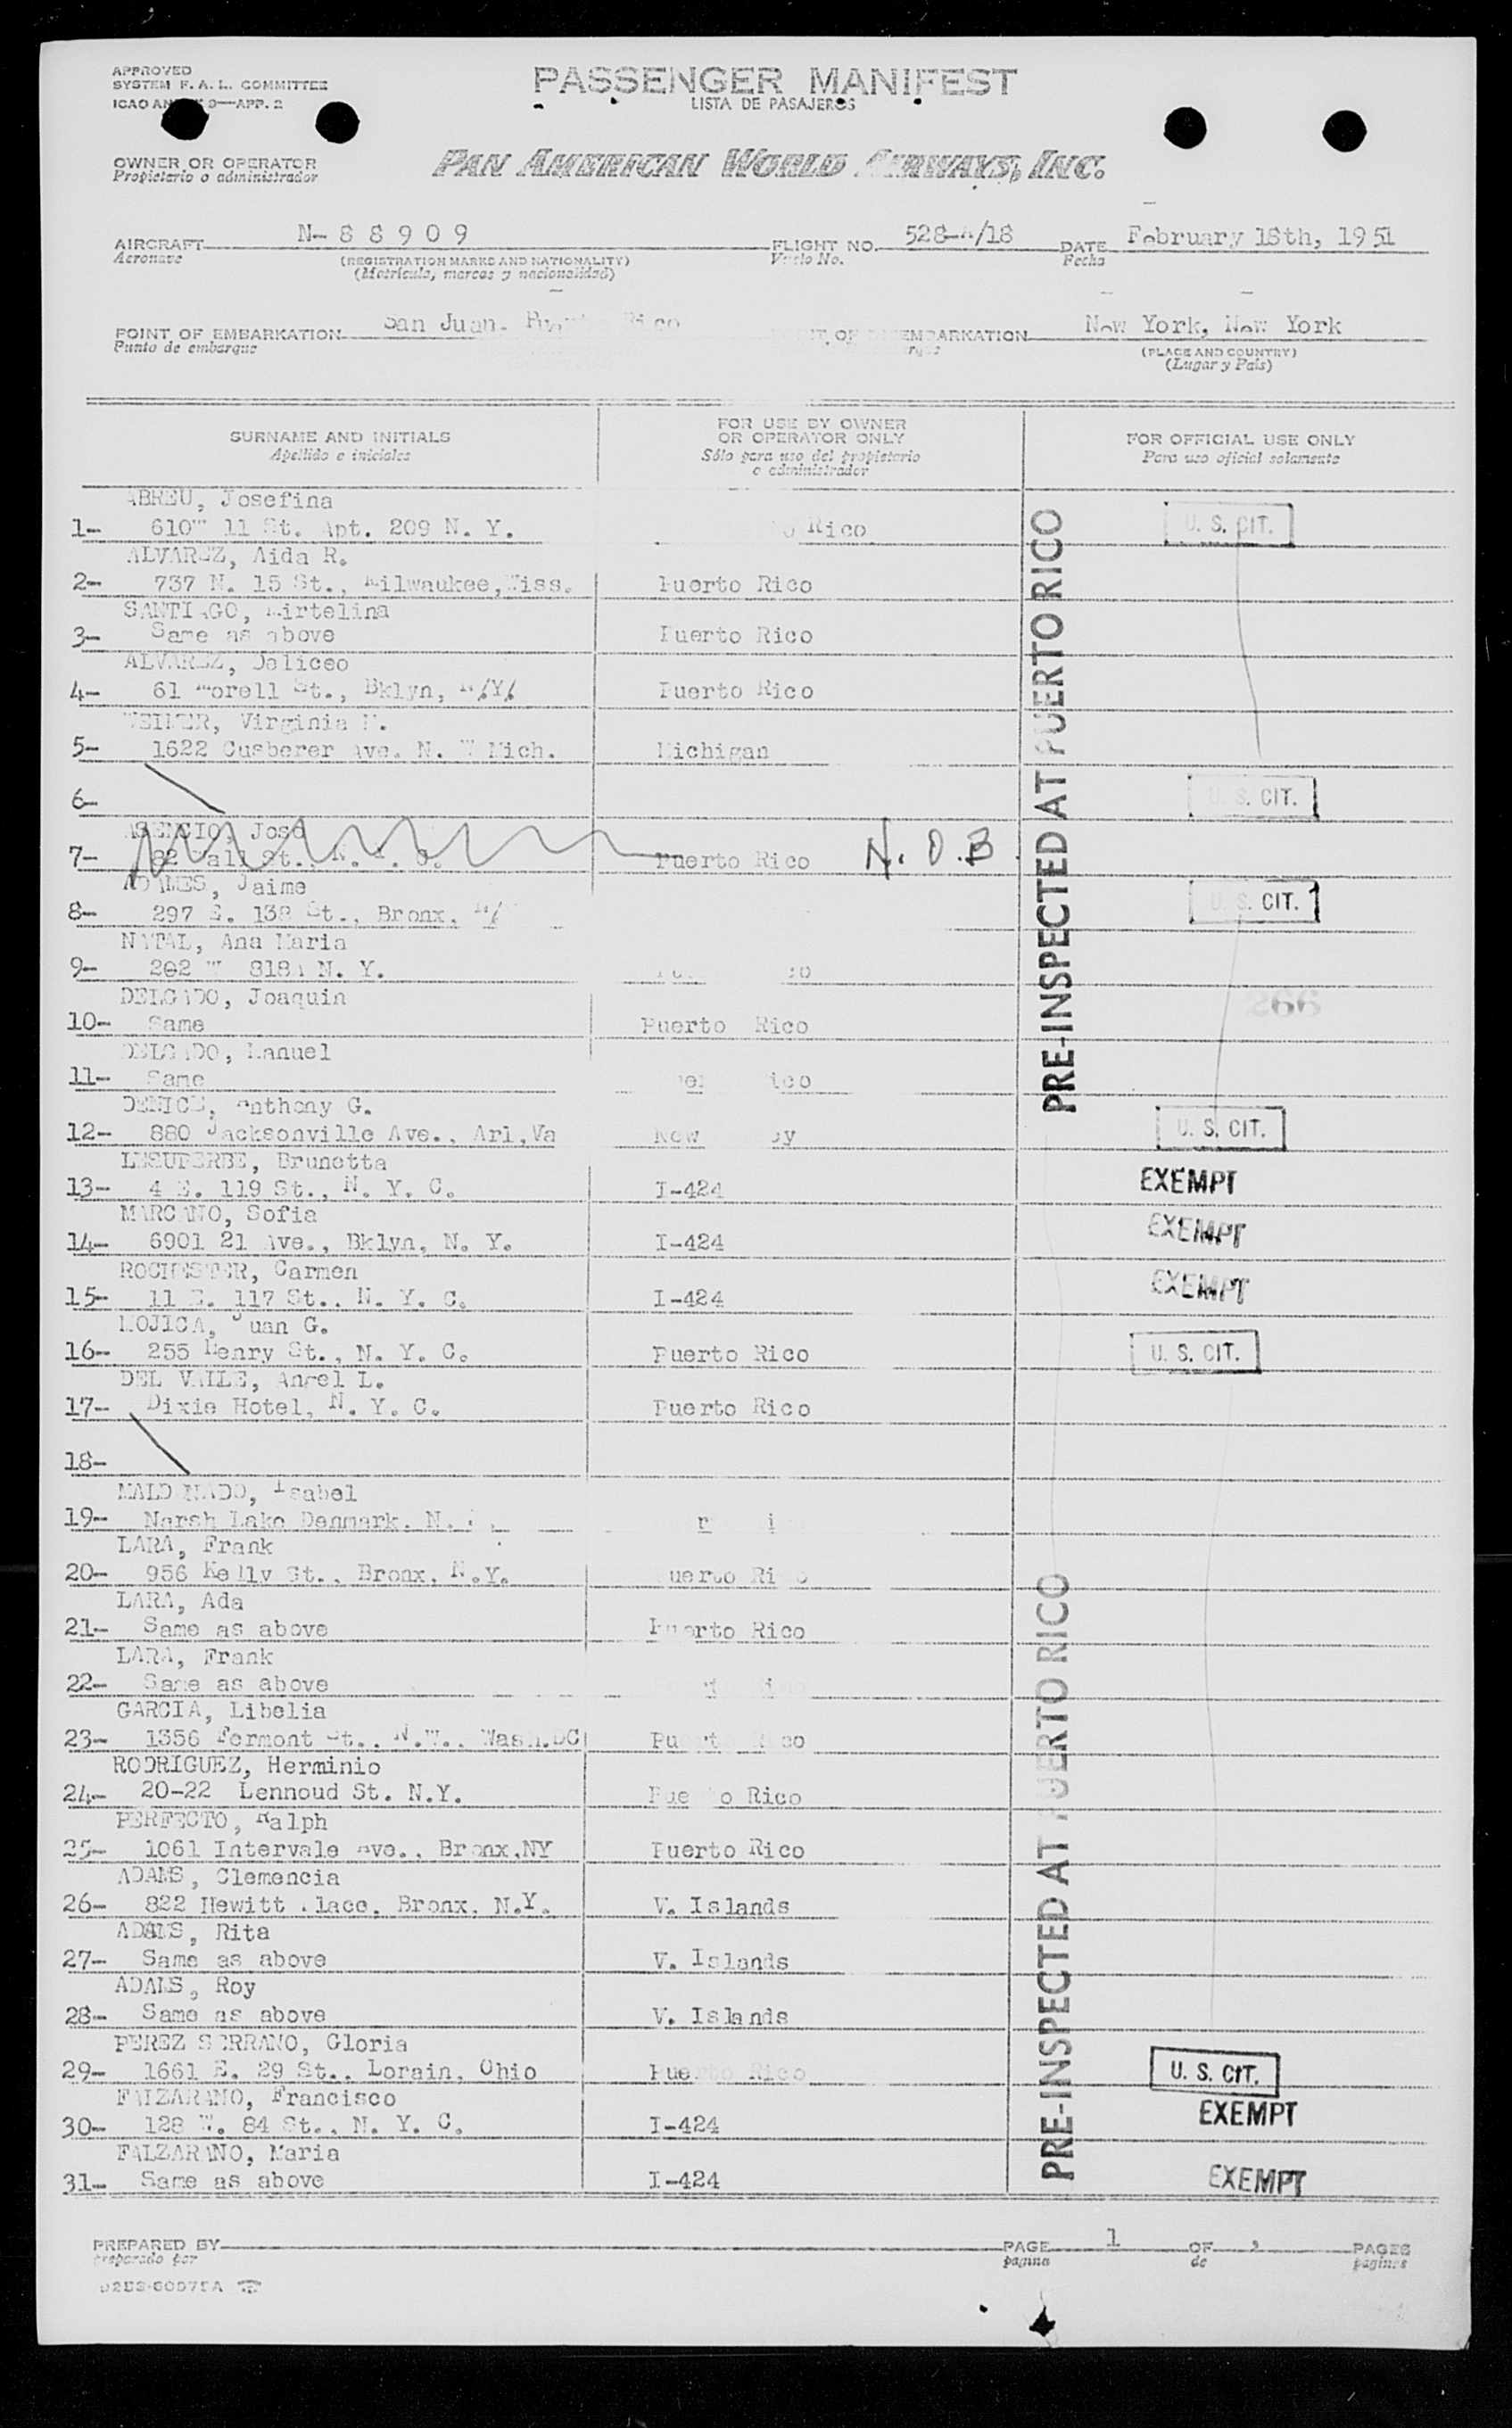 APPROVED
SYSTEM F. A. L. COMMITTEE
ICAO 9—APP. 2
PASSENGER MANIFEST
LISTA DE PASAJEROS
OWNER OR OPERATOR
Propietario o administrador
PAN AMERICAN WORLD AIRWAYS, INC.
AIRCRAFT N- 8 8 9 0 9 FLIGHT NO. DATE February 18th, 1951
Aeronave (REGISTRATION MARKS AND NATIONALITY) Vuelo No. Fecha
(Matrícula, marcas y nacionalidad)
POINT OF EMBARKATION San Juan. Rico New York, New York
Punto de embarque (PLACE AND COUNTRY)
(Lugar y País)
SURNAME AND INITIALS FOR USE BY OWNER OR OPERATOR ONLY FOR OFFICIAL USE ONLY
Apellido e iniciales Sólo para uso del propietario o administrador Para uso oficial solamente
ABREU, Josefina
1- 610 11 St. Apt. 209 N. Y. Rico U. S. CIT.
ALVAREZ, Aida R.
2- 737 N. 15 St., Milwaukee, Wiss. Puerto Rico
SANTIAGO, Mirtelina
3- Same as above Puerto Rico
ALVAREZ, Deliceo
4- 61 Morell St., Bklyn, N/Y/ Puerto Rico
Virginia
5- 1622 Ave. N. W Mich. Michigan
6- U. S. CIT.
ASENCIO, José
7- 82 Wall St., Puerto Rico N. O. B.
ADAMES, Jaime
8- 297 E. 138 St., Bronx, U. S. CIT.
NATAL, Ana Maria
9- N. Y.
DELGADO, Joaquin
10- Same Puerto Rico
DELGADO, Manuel
11- Same
DENICE, Anthony G.
12- 880 Jacksonville Ave., Arl,Va New U. S. CIT.
LESUPERBE, Brunetta
13- 4 E. 119 St., N. Y. C. I-424 EXEMPT
MARCANO, Sofia
14- 6901 21 Ave., Bklyn, N. Y. I-424 EXEMPT
ROCHESTER, Carmen
15- 11 E. 117 St., N. Y. C. I-424 EXEMPT
MOJICA, Juan G.
16- 255 Henry St., N. Y. C. Puerto Rico U. S. CIT.
DEL VALLE, Angel L.
17- Dixie Hotel, N. Y. C. Puerto Rico
18-
MALDONADO, Isabel
19- Marsh Lake Denmark. N.
LARA, Frank
20- 956 Kelly St., Bronx, N.Y.
LARA, Ada
21- Same as above Puerto Rico
LARA, Frank
22- Same as above
GARCIA, Libelia
23- 1356 Fermont St., N.W., Wash.DC
RODRIGUEZ, Herminio
24- 20-22 Lennoud St. N.Y. Rico
PERFECTO, Ralph
25- 1061 Intervale Ave., Bronx,NY Puerto Rico
ADAMS, Clemencia
26- 822 Hewitt Place, Bronx, N.Y. V. Islands
ADAMS, Rita
27- Same as above V. Islands
ADAMS, Roy
28- Same as above V. Islands
PEREZ SERRANO, Gloria
29- 1661 E. 29 St., Lorain, Ohio Puerto Rico U. S. CIT.
FALZARANO, Francisco
30- 128 W. 84 St., N. Y. C. I-424 EXEMPT
FALZARANO, Maria
31- Same as above I-424 EXEMPT
PRE-INSPECTED AT PUERTO RICO
PRE-INSPECTED AT PUERTO RICO
PREPARED BY PAGE 1 OF PAGES
preparado por pagina de paginas